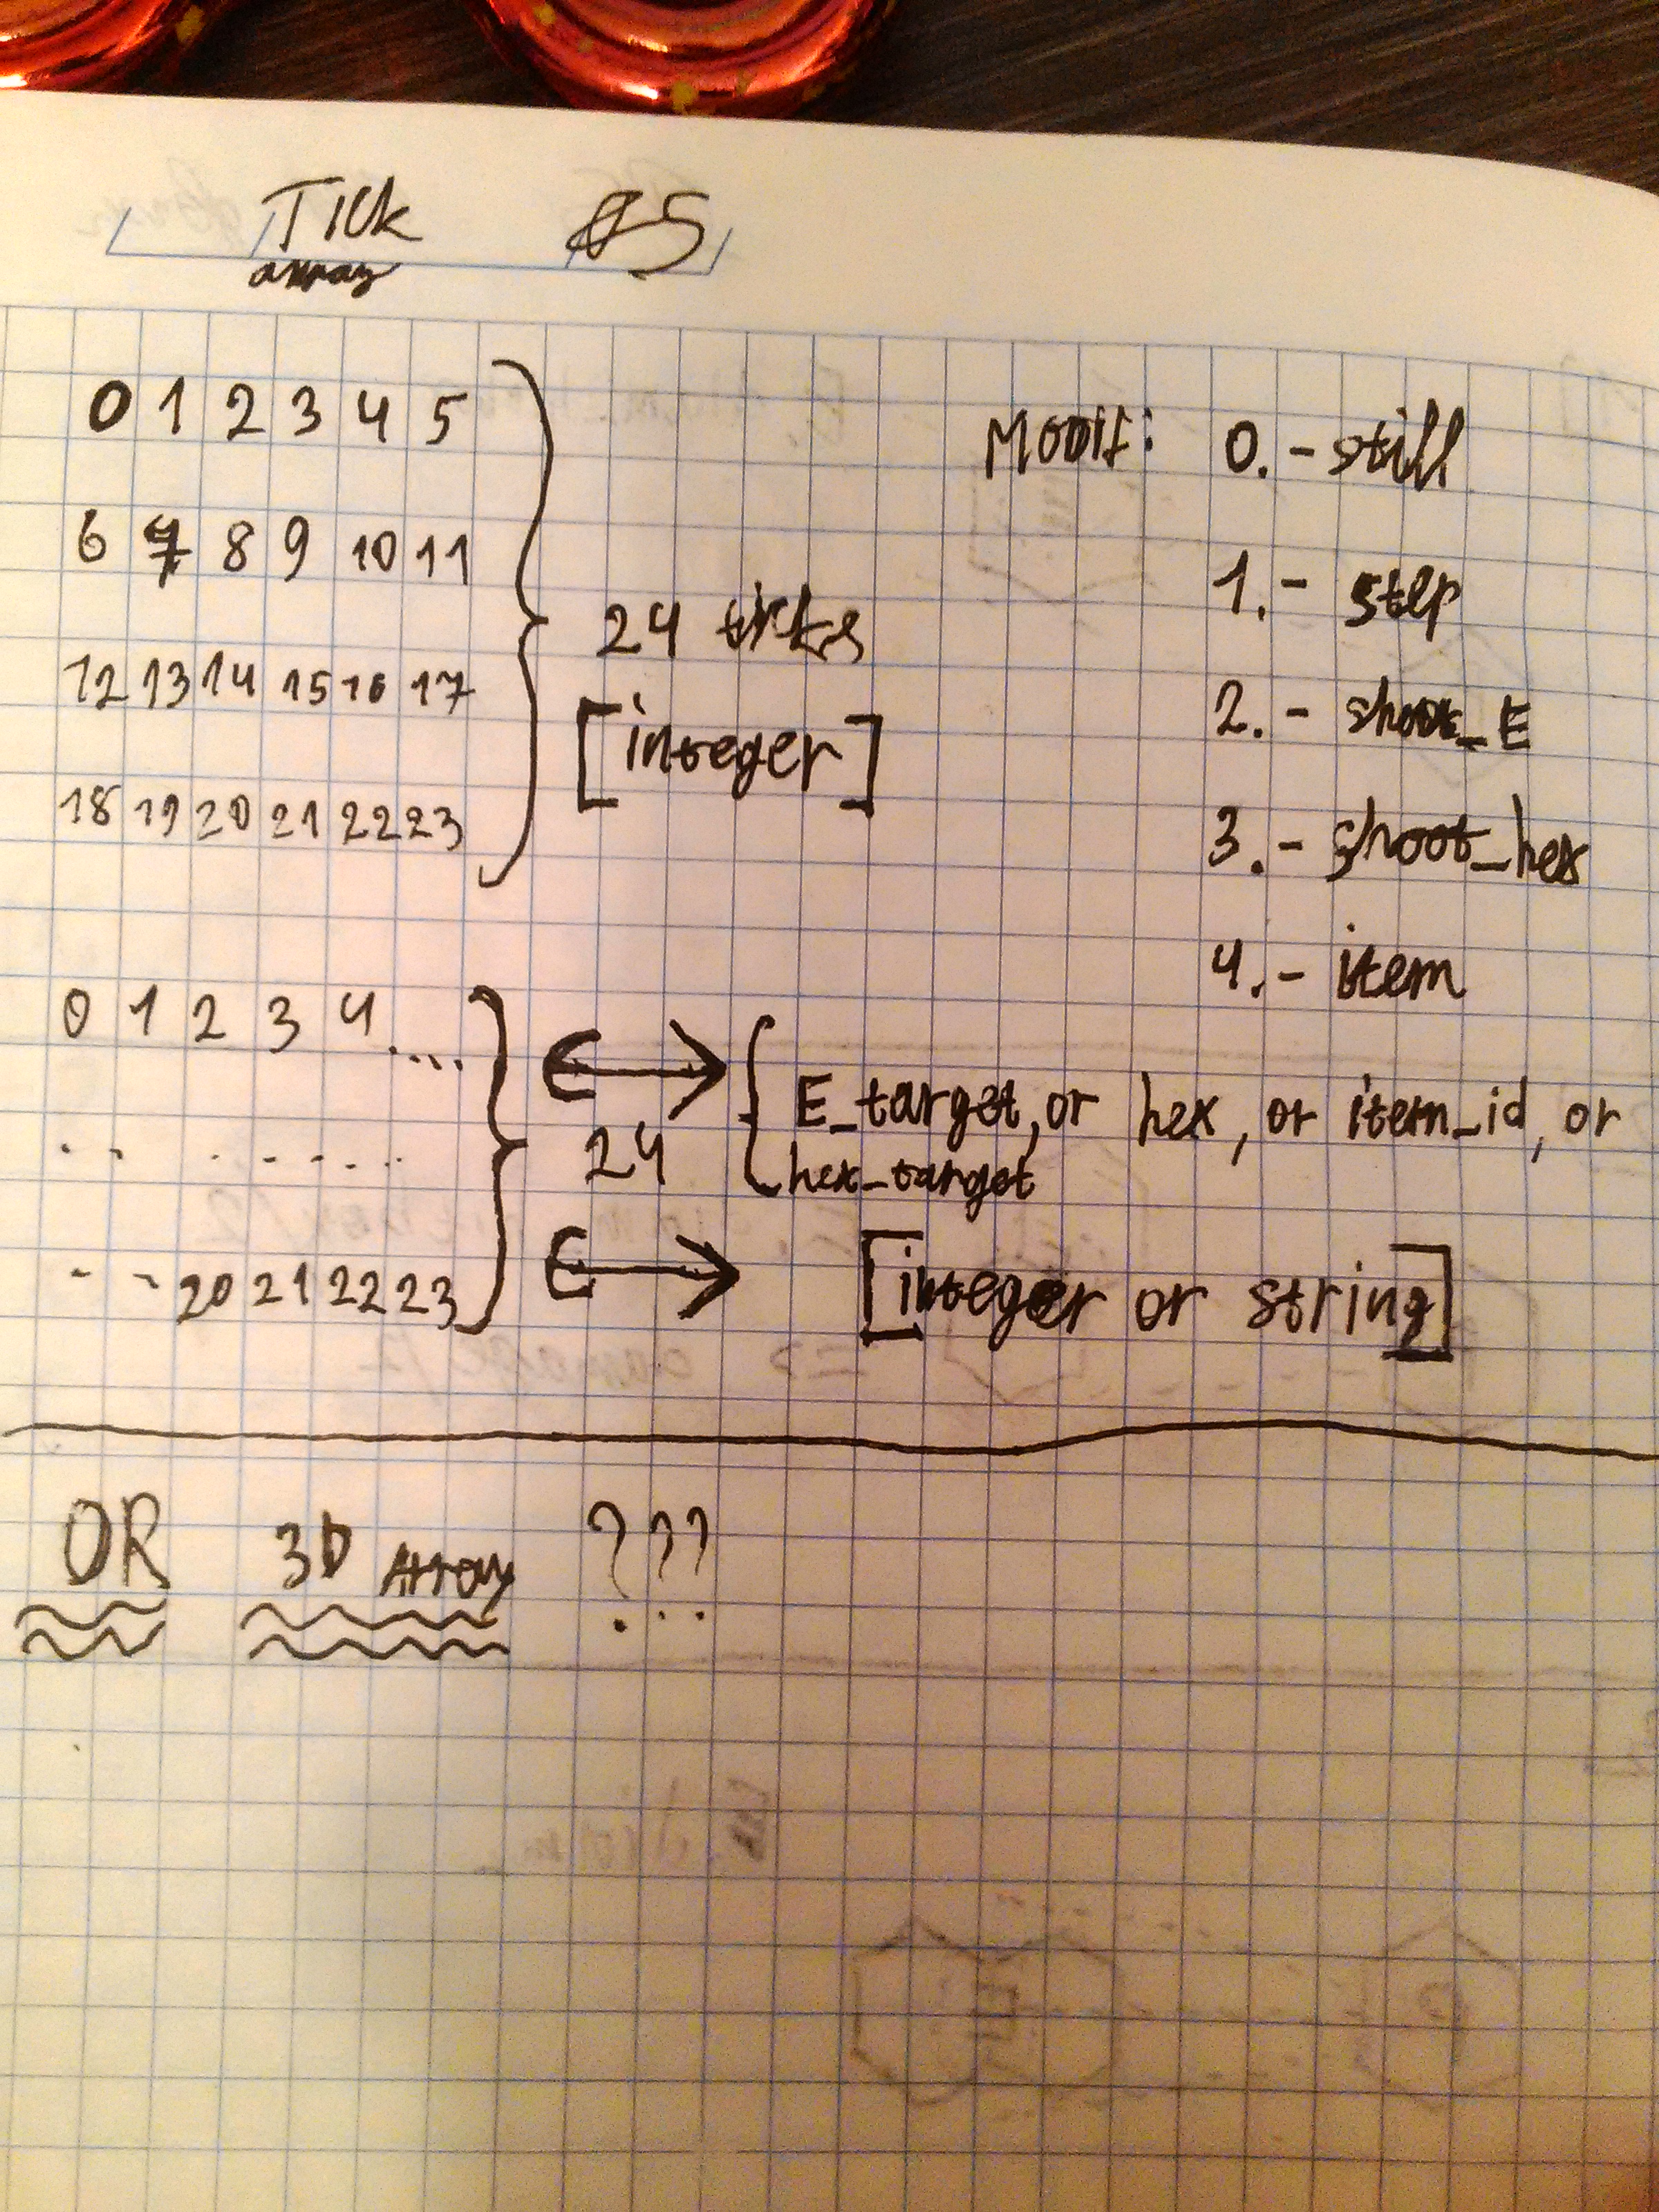 Tick
array
0 1 2 3 4 5
6 7 8 9 10 11
12 13 14 15 16 17
18 19 20 21 22 23
24 ticks
[integer]
Modif: 0. - still
1. - step
2. - shoot_E
3. - shoot_hex
4. - item
0 1 2 3 4 ....
.. ......
- - 20 21 22 23
24
E_target, or hex, or item_id, or
hex_target
[integer or string]
OR 3D Array ???